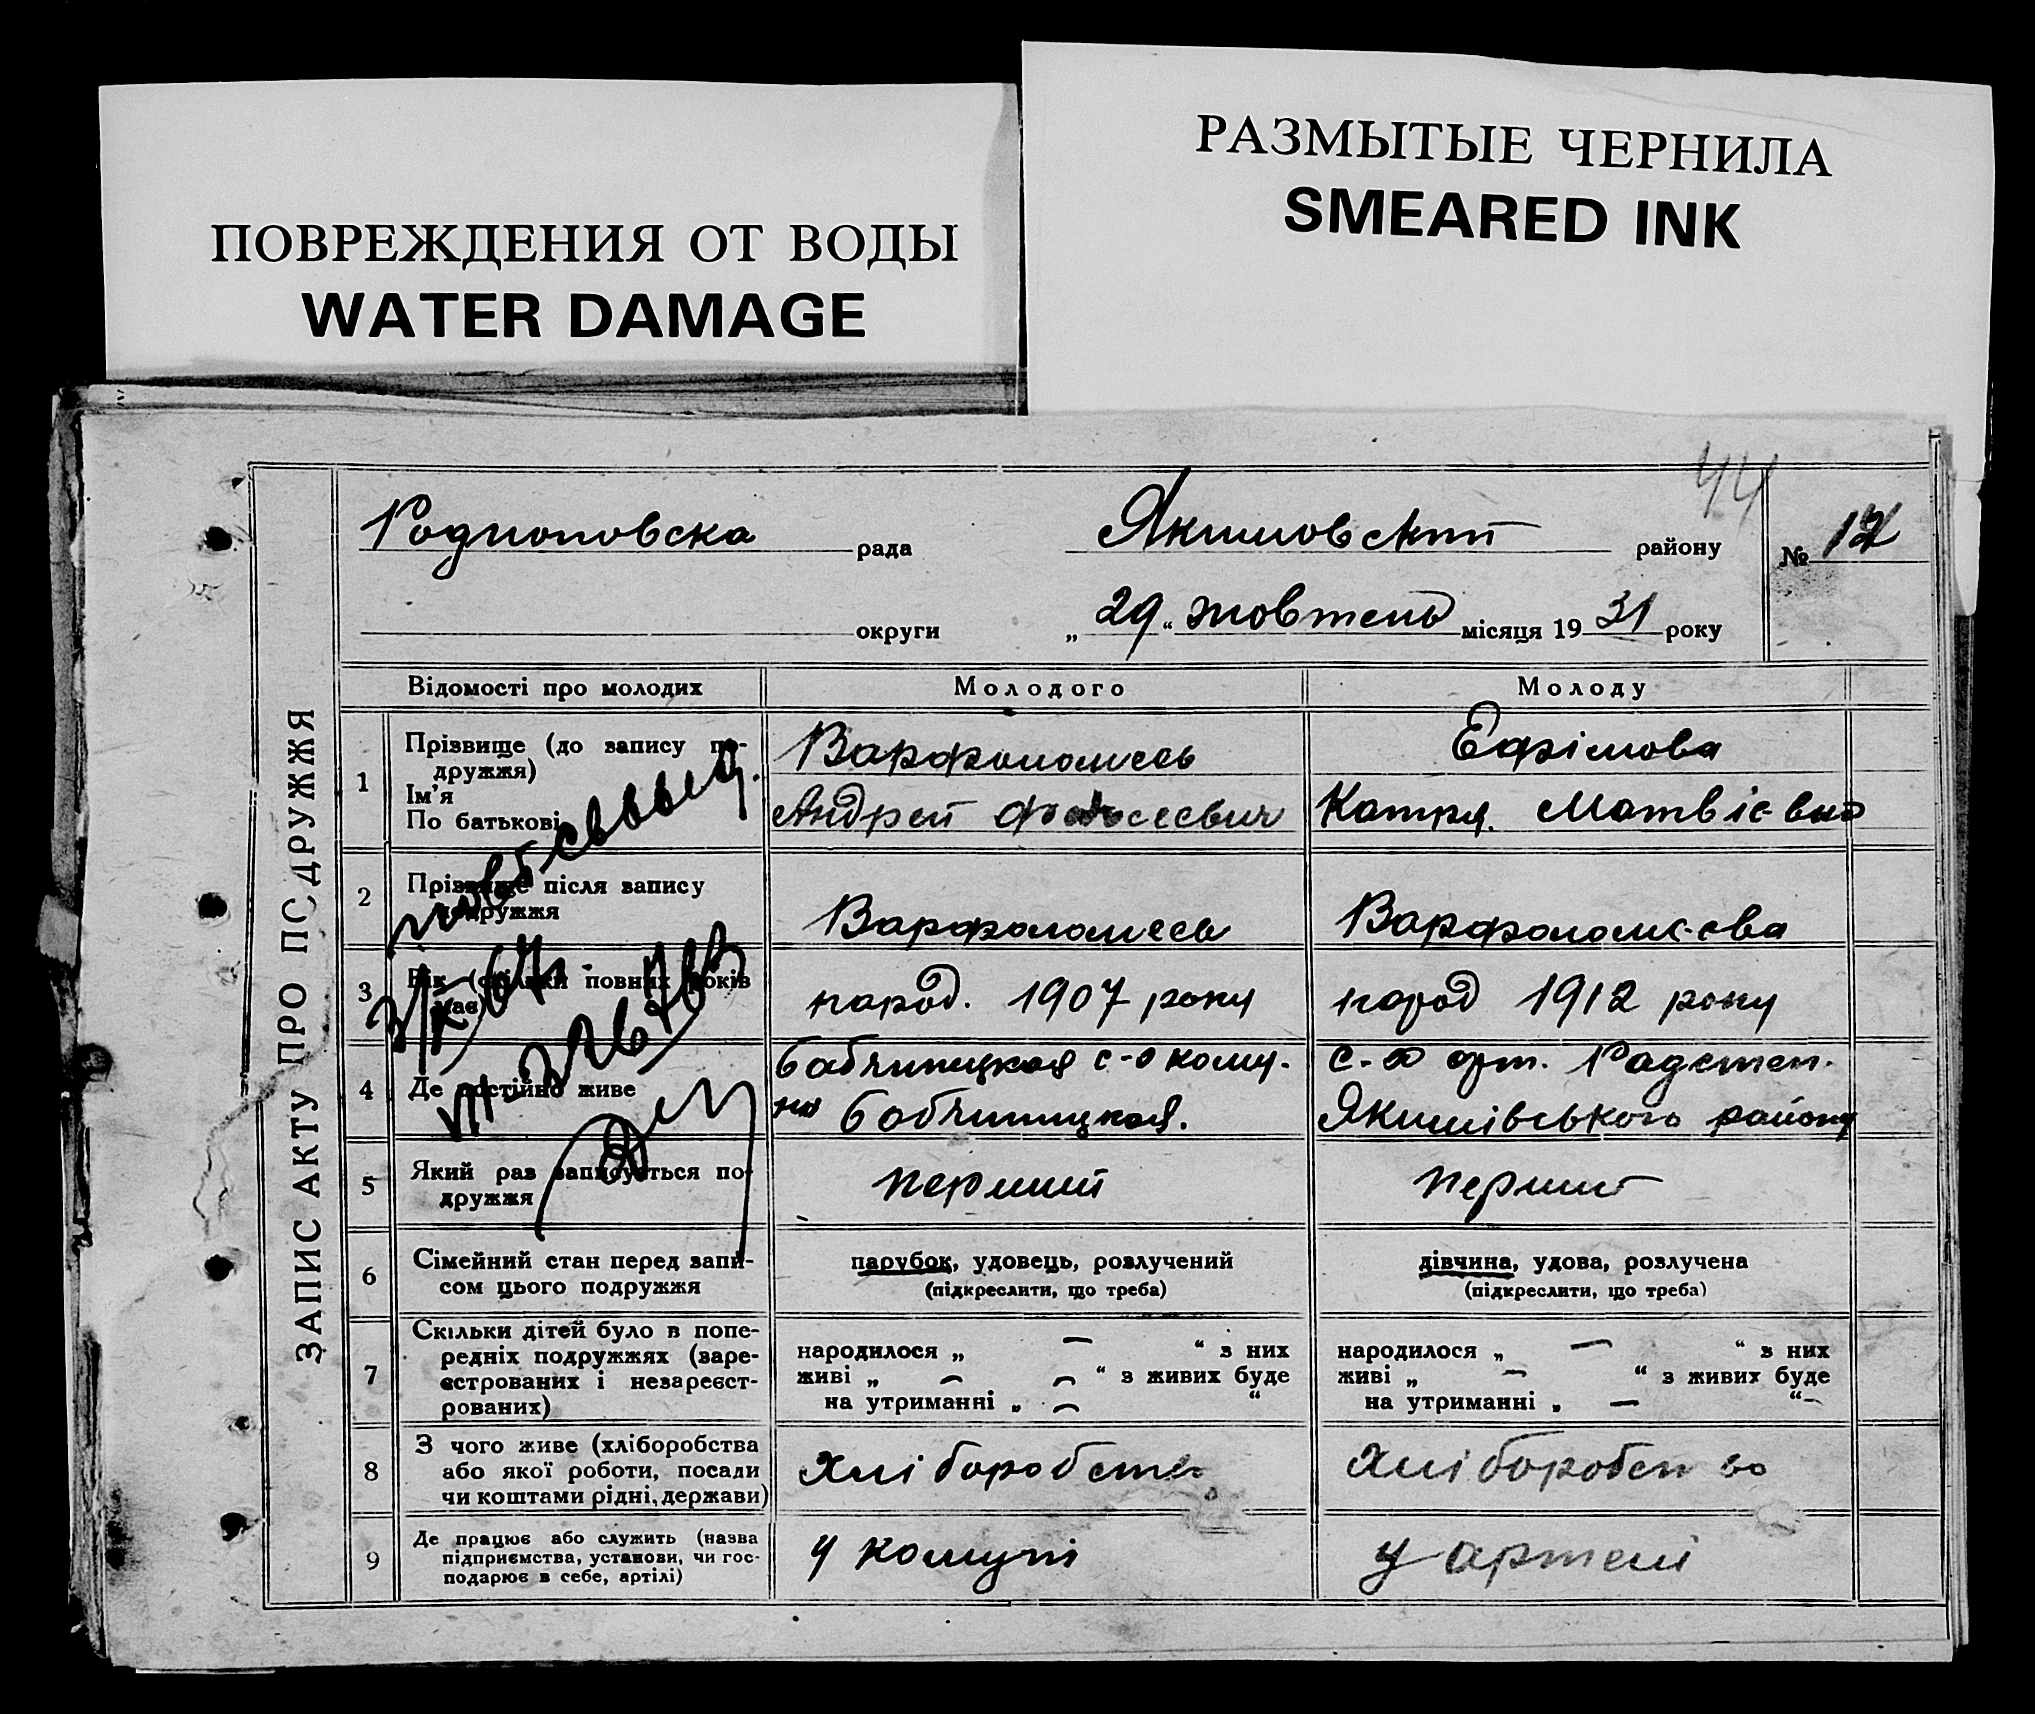 ПОВРЕЖДЕНИЯ ОТ ВОДЫ
WATER DAMAGE
РАЗМЫТЫЕ ЧЕРНИЛА
SMEARED INK
44
Родионовска рада Якимовский району № 12
округи „29“ жовтень місяця 1931 року
ЗАПИС АКТУ ПРО ПОДРУЖЖЯ
Відомості про молодих Молодого Молоду
1 Прізвище (до запису по-
дружжя)
Ім'я
По батькові
Варфоломеєв
Андрей
Ефімова
Катря Матвієвна
2 Прізвище після запису
подружжя
Варфоломеєв
Варфоломєєва
3 Вік (скільки повних років
має)
народ. 1907 року
народ 1912 року
4 Де постійно живе
с-г кому-
на
с-г арт. Радстеп.
Якимівського району
5 Який раз записується по-
дружжя
перший
перший
6 Сімейний стан перед запи-
сом цього подружжя
парубок, удовець, розлучений
(підкреслити, що треба)
дівчина, удова, розлучена
(підкреслити, що треба)
7 Скільки дітей було в попе-
редніх подружжях (заре-
єстрованих і незареєст-
рованих)
народилося „ — “ з них
живі „ — — “ з живих буде
на утриманні „ — “
народилося „ — “ з них
живі „ — “ з живих буде
на утриманні „ — “ —
8 З чого живе (хліборобства
або якої роботи, посади
чи коштами рідні, держави)
хліборобство
хліборобство
9 Де працює або служить (назва
підприємства, установи, чи гос-
подарює в себе, артілі)
у комуні
у артелі